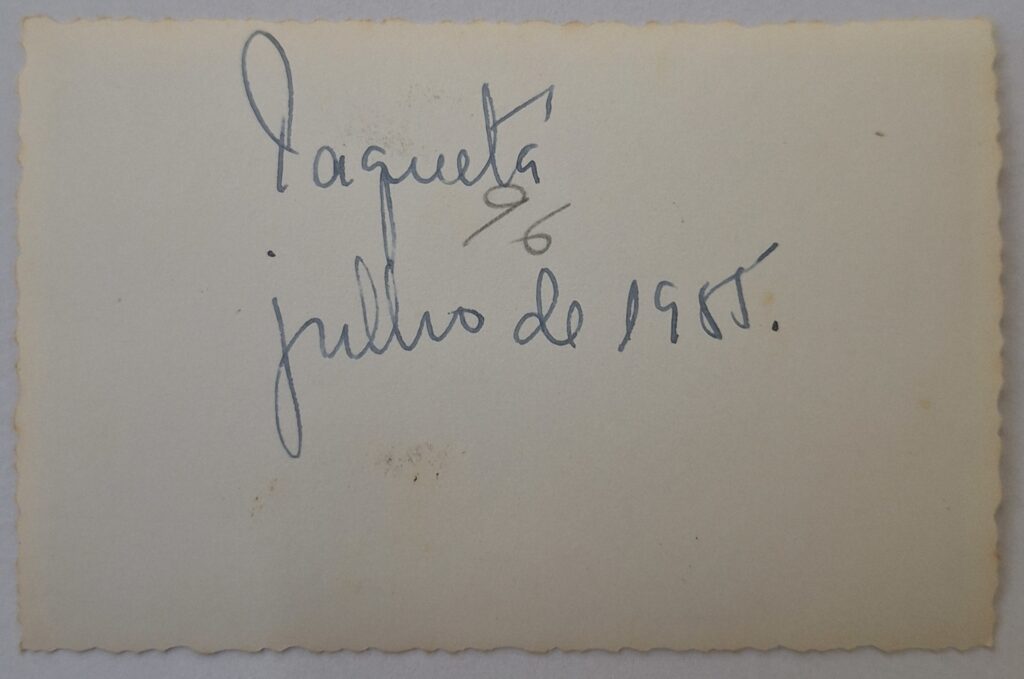 Paquetá
96
julho de 1955.